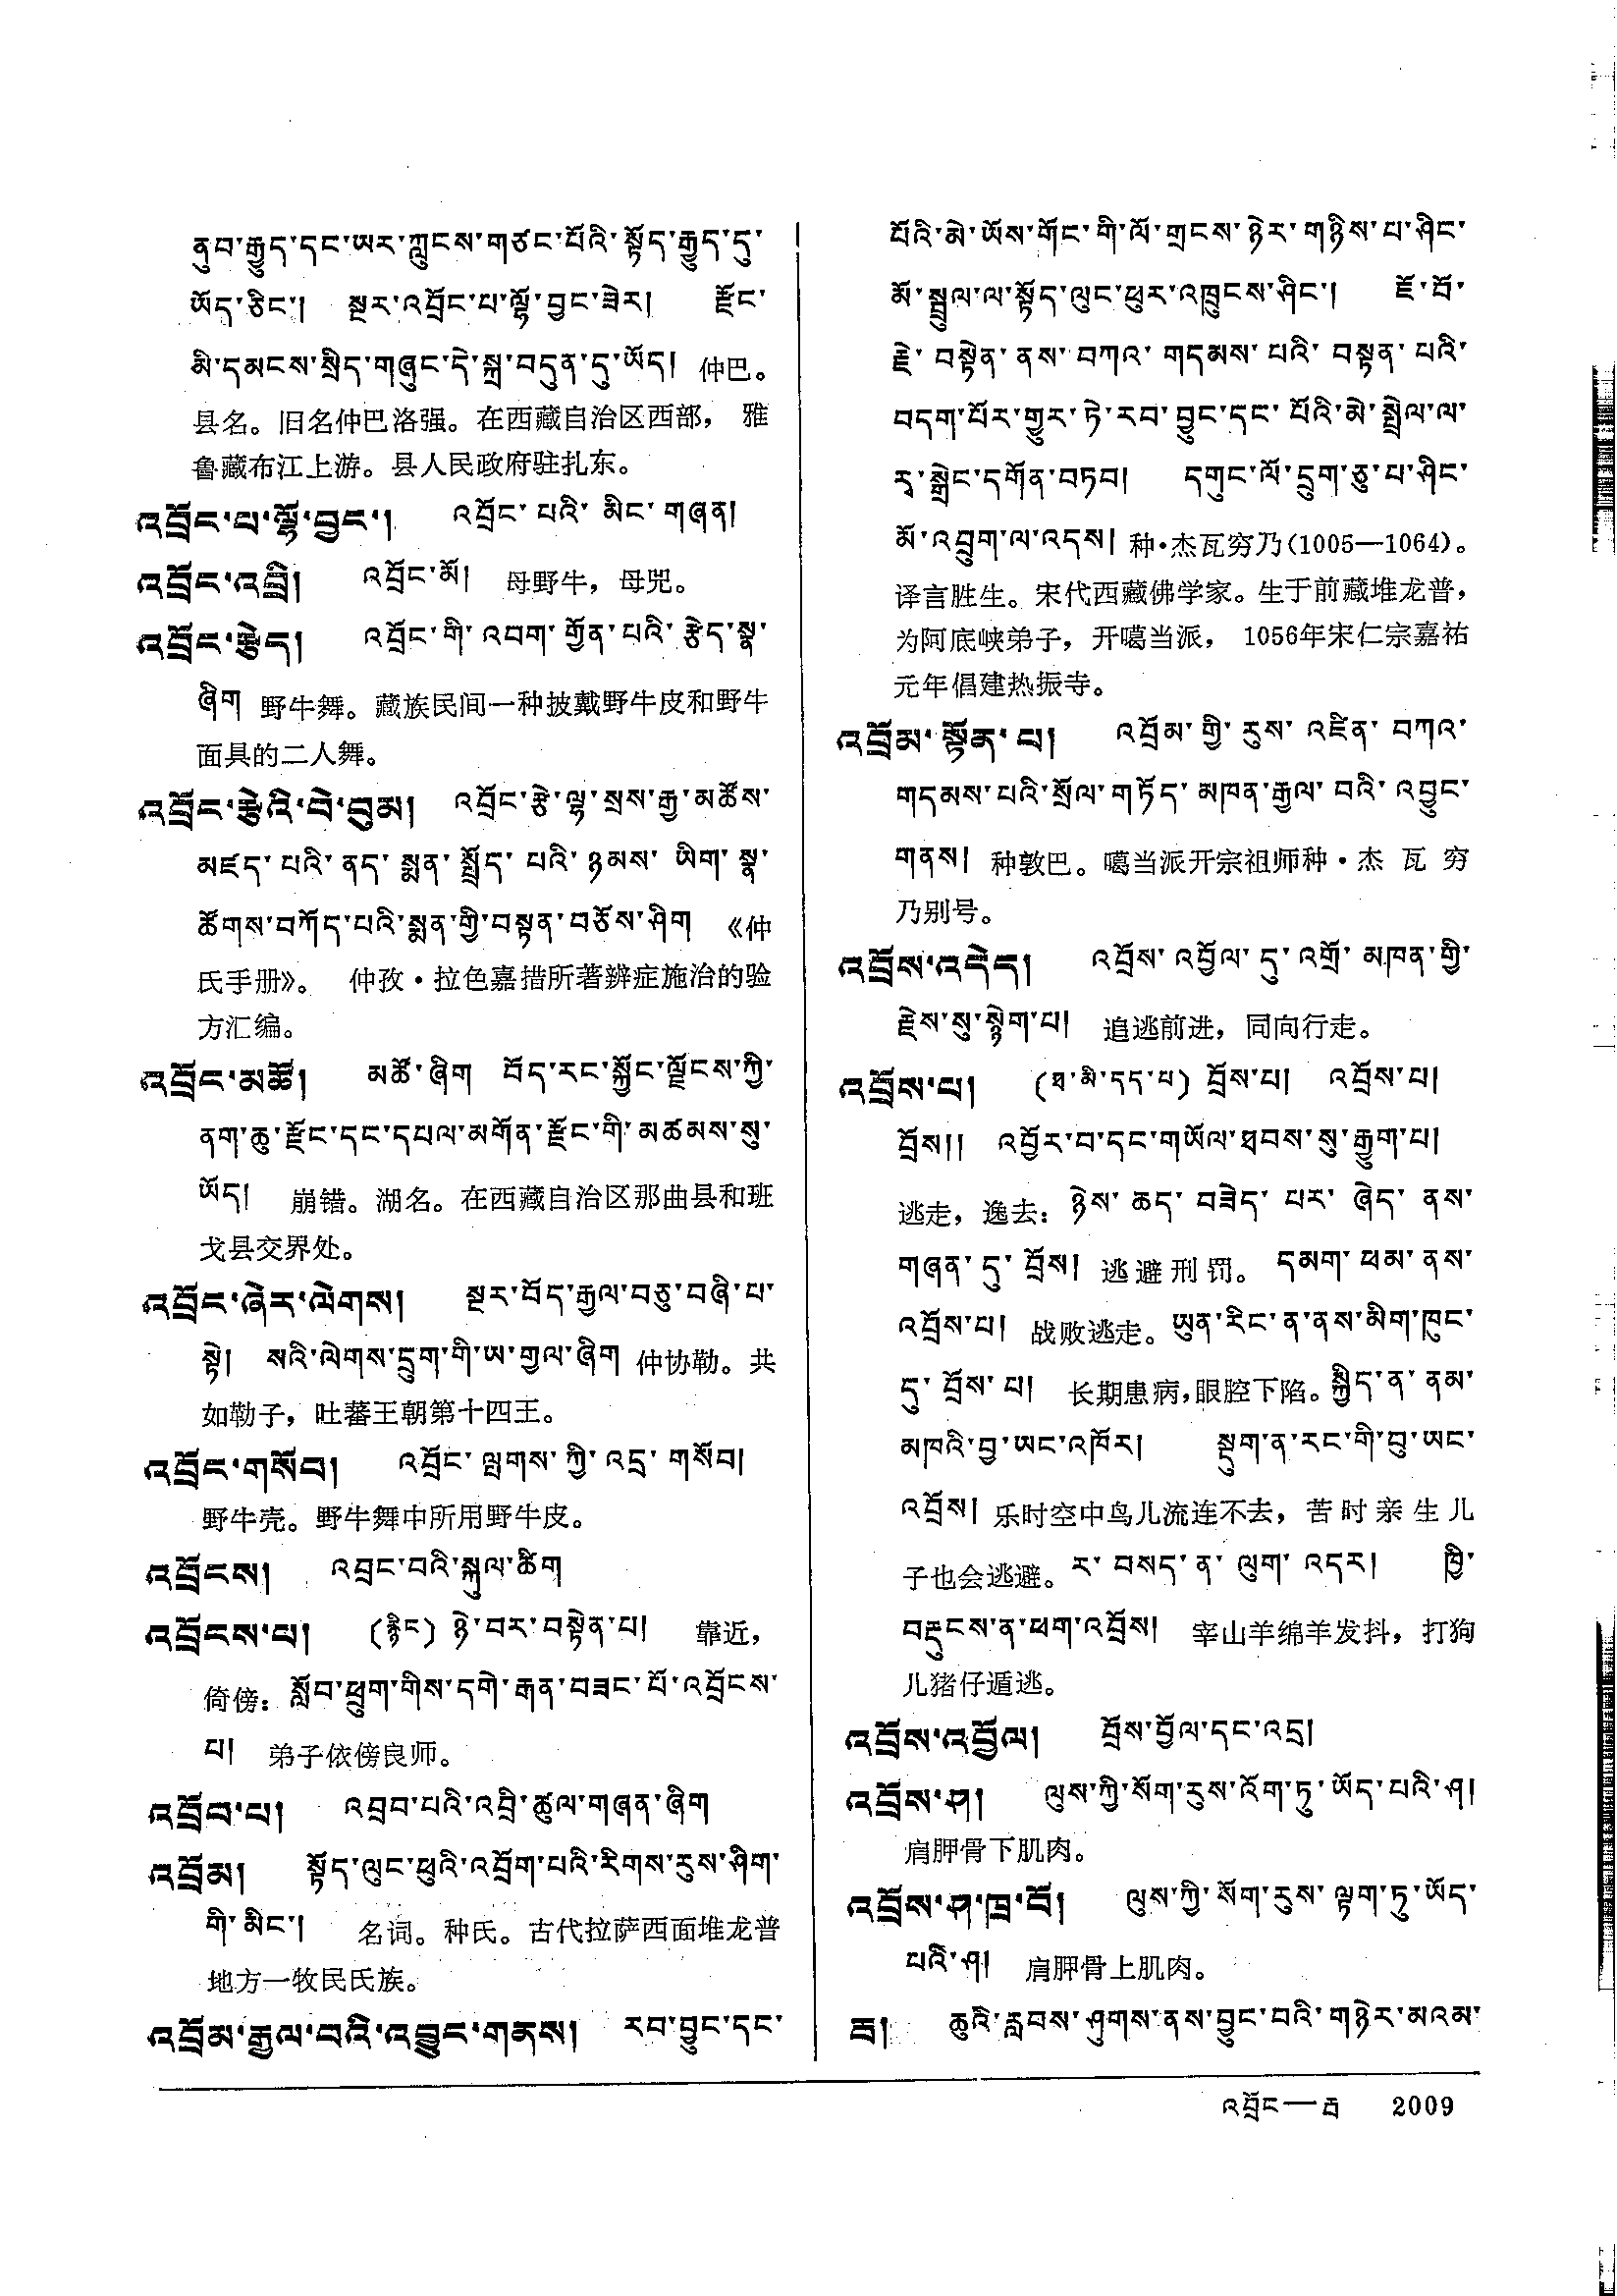 ནུབ་རྒྱུད་དང་ཡར་ཀླུངས་གཙང་པོའི་སྟོད་རྒྱུད་དུ་
ཡོད་ཅིང་། སྔར་འབྲོང་པ་ལྷོ་བྱང་ཟེར། རྫོང་
མི་དམངས་སྲིད་གཞུང་དེ་སྐྲ་བདུན་དུ་ཡོད། 仲巴。
县名。旧名仲巴洛强。在西藏自治区西部， 雅
鲁藏布江上游。县人民政府驻扎东。
འབྲོང་པ་ལྷོ་བྱང་། འབྲོང་པའི་མིང་གཞན།
འབྲོང་འབྲི། འབྲོང་མོ། 母野牛，母兕。
འབྲོང་རྩེད། འབྲོང་གི་འབག་གྱོན་པའི་རྩེད་སྣ་
ཞིག 野牛舞。藏族民间一种披戴野牛皮和野牛
面具的二人舞。
འབྲོང་རྩེའི་བེ་བུམ། འབྲོང་རྩེ་ལྷ་སྲས་རྒྱ་མཚོས་
མཛད་པའི་ནད་སྨན་སྤྲོད་པའི་ཉམས་ཡིག་སྣ་
ཚོགས་བཀོད་པའི་སྨན་གྱི་བསྟན་བཅོས་ཤིག 《仲
氏手册》。 仲孜·拉色嘉措所著辨症施治的验
方汇编。
འབྲོང་མཚོ། མཚོ་ཞིག བོད་རང་སྐྱོང་ལྗོངས་ཀྱི་
ནག་ཆུ་རྫོང་དང་དཔལ་མགོན་རྫོང་གི་མཚམས་སུ་
ཡོད། 崩错。湖名。在西藏自治区那曲县和班
戈县交界处。
འབྲོང་ཞེར་ལེགས། སྔར་བོད་རྒྱལ་བཅུ་བཞི་པ་
སྟེ། སའི་ལེགས་དྲུག་གི་ཨ་གྱལ་ཞིག 仲协勒。共
如勒子，吐蕃王朝第十四王。
འབྲོང་གསོབ། འབྲོང་ལྤགས་ཀྱི་འདྲ་གསོབ།
野牛壳。野牛舞中所用野牛皮。
འབྲོངས། འབྲང་བའི་སྐུལ་ཚིག
འབྲོངས་པ། (རྙིང) ཉེ་བར་བསྟེན་པ། 靠近，
倚傍：སློབ་ཕྲུག་གིས་དགེ་རྒན་བཟང་པོ་འབྲོངས་
པ། 弟子依傍良师。
འབྲོབ་པ། འབྲབ་པའི་འབྲི་ཚུལ་གཞན་ཞིག
འབྲོམ། སྟོད་ལུང་ཕུའི་འབྲོག་པའི་རིགས་རུས་ཤིག་
གི་མིང་། 名词。种氏。古代拉萨西面堆龙普
地方一牧民氏族。
འབྲོམ་རྒྱལ་བའི་འབྱུང་གནས། རབ་བྱུང་དང་
པོའི་མེ་ཡོས་གོང་གི་ལོ་གྲངས་ཉེར་གཉིས་པ་ཤིང་
མོ་སྦྲུལ་ལ་སྟོད་ལུང་ཕུར་འཁྲུངས་ཤིང་། ཇོ་བོ་
རྗེ་བསྟེན་ནས་བཀའ་གདམས་པའི་བསྟན་པའི་
བདག་པོར་གྱུར་ཏེ་རབ་བྱུང་དང་པོའི་མེ་སྤྲེལ་ལ་
རྭ་སྒྲེང་དགོན་བཏབ། དགུང་ལོ་དྲུག་ཅུ་པ་ཤིང་
མོ་འབྲུག་ལ་འདས། 种·杰瓦穷乃(1005—1064)。
译言胜生。宋代西藏佛学家。生于前藏堆龙普，
为阿底峡弟子，开噶当派， 1056年宋仁宗嘉祐
元年倡建热振寺。
འབྲོམ་སྟོན་པ། འབྲོམ་གྱི་རུས་འཛིན་བཀའ་
གདམས་པའི་སྲོལ་གཏོད་མཁན་རྒྱལ་བའི་འབྱུང་
གནས། 种敦巴。噶当派开宗祖师种·杰瓦穷
乃别号。
འབྲོས་འདེད། འབྲོས་འབྱོལ་དུ་འགྲོ་མཁན་གྱི་
རྗེས་སུ་སྙེག་པ། 追逃前进，同向行走。
འབྲོས་པ། (ཐ་མི་དད་པ) བྲོས་པ། འབྲོས་པ།
བྲོས།། འབྱོར་བ་དང་གཡོལ་ཐབས་སུ་རྒྱུག་པ།
逃走，逸去：ཉེས་ཆད་བཟེད་པར་ཞེད་ནས་
གཞན་དུ་བྲོས། 逃避刑罚。དམག་ཕམ་ནས་
འབྲོས་པ། 战败逃走。ཡུན་རིང་ན་ནས་མིག་ཁུང་
དུ་བྲོས་པ། 长期患病，眼腔下陷。སྐྱིད་ན་ནམ་
མཁའི་བྱ་ཡང་འཁོར། སྡུག་ན་རང་གི་བུ་ཡང་
འབྲོས། 乐时空中鸟儿流连不去，苦时亲生儿
子也会逃避。ར་བསད་ན་ལུག་འདར། ཁྱི་
བརྡུངས་ན་ཕག་འབྲོས། 宰山羊绵羊发抖，打狗
儿猪仔遁逃。
འབྲོས་འབྱོལ། བྲོས་བྱོལ་དང་འདྲ།
འབྲོས་ཤ། ལུས་ཀྱི་སོག་རུས་འོག་ཏུ་ཡོད་པའི་ཤ།
肩胛骨下肌肉。
འབྲོས་ཤ་ཁྲ་བོ། ལུས་ཀྱི་སོག་རུས་ལྟག་ཏུ་ཡོད་
པའི་ཤ། 肩胛骨上肌肉。
རྦ། ཆུའི་རླབས་ཤུགས་ནས་བྱུང་བའི་གཉེར་མའམ་
འབྲོང—རྦ 2009